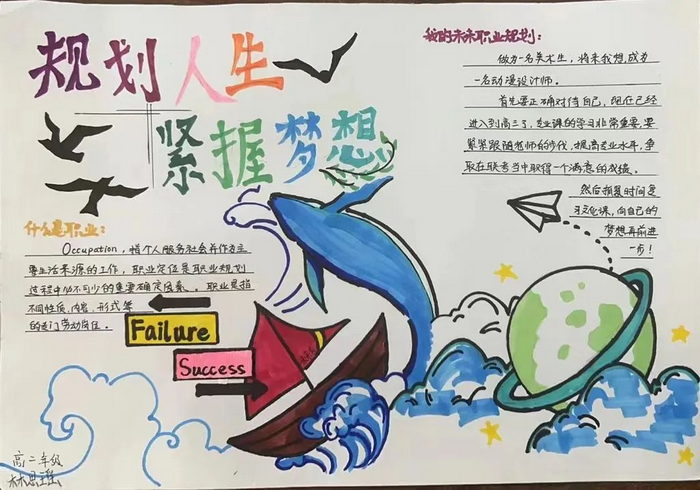 规划人生
紧握梦想
什么是职业：
Occupation，指个人服务社会并作为主
要生活来源的工作，职业定位是职业规划
过程中必不可少的重要确定因素。职业是指
不同性质、内容、形式等
的专门劳动岗位。
Failure
Success
我的未来职业规划：
做为一名美术生，将来我想成为
一名动漫设计师。
首先要正确对待自己，现在已经
进入到高三了，专业课的学习非常重要，要
紧紧跟随老师的步伐，提高专业水平，争
取在联考当中取得一个满意的成绩。
然后抓紧时间复
习文化课，向自己的
梦想再前进
一步！
高二年级
林思瑶